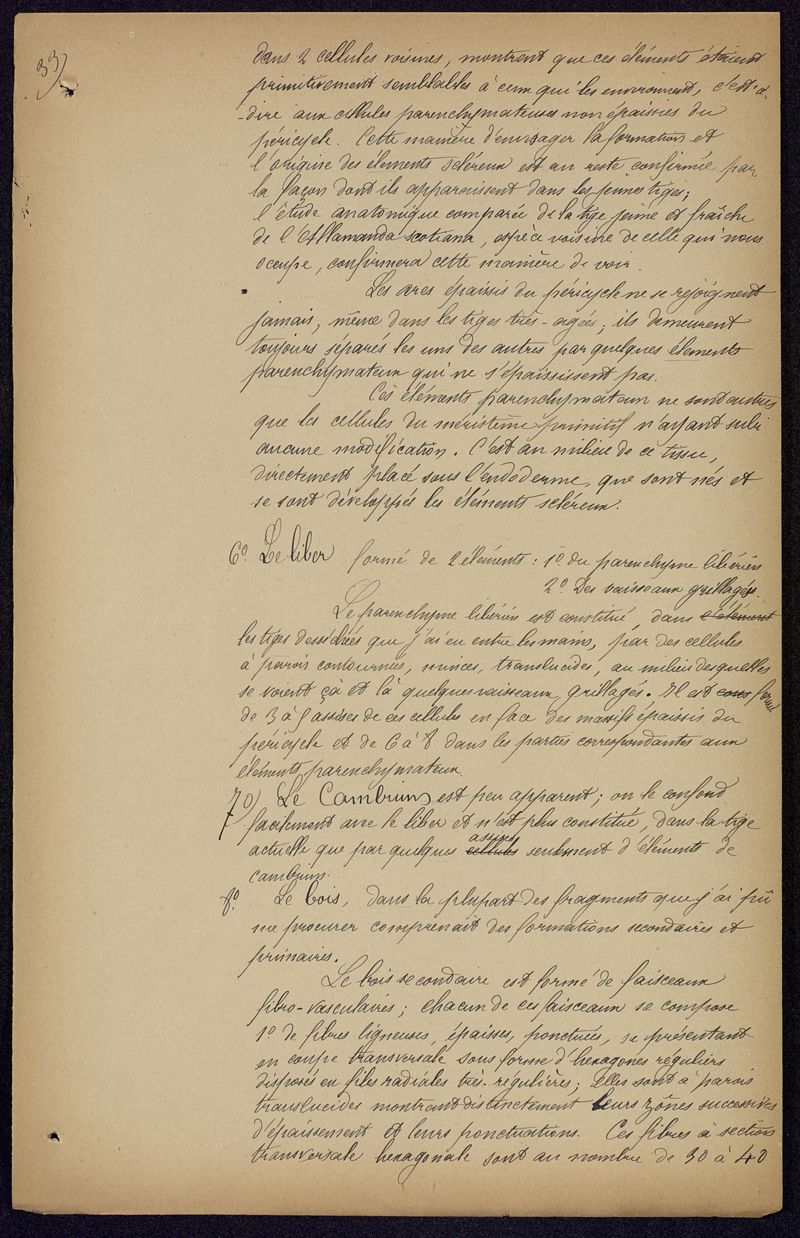 33
dans 2 cellules voisines, montrent que ces éléments étaient
primitivement semblables à ceux qui les environnent, c'est-à
-dire aux cellules parenchymateuses non épaissies du
péricycle. Cette manière d'envisager la formation et
l'origine des éléments scléreux est au reste confirmée par
la façon dont ils apparaissent dans les jeunes tiges;
l'étude anatomique comparée de la tige jeune et fraîche
de l'Allamanda scotiana, espèce voisine de celle qui nous
occupe, confirmera cette manière de voir.
Les arcs épaissis du péricycle ne se rejoignent
jamais, même dans les tiges très-agées; ils demeurent
toujours séparés les uns des autres par quelques éléments
parenchymateux qui ne s'épaississent pas.
Ces éléments parenchymateux ne sont autres
que les cellules du méristème primitif n'ayant subi
aucune modification. C'est au milieu de ce tissu,
directement placé sous l'endoderme, que sont nés et
se sont développés les éléments scléreux.
6º. Le liber formé de 2 éléments : 1º. du parenchyme libérien
2º. Des vaisseaux grillagés.
Le parenchyme libérien est constitué, dans l'élément
les tiges desséchées que j'ai eu entre les mains, par des cellules
à parois contournées, minces, translucides, au milieu desquelles
se voient çà et là quelques vaisseaux grillagés. Il est formé
de 3 à assises de ces cellules en face des massifs épaissis du
péricycle et de 6 à 8 dans les parties correspondantes aux
éléments parenchymateux.
7º) Le Cambium est peu apparent; on le confond
facilement avec le liber et n'est plus constitué, dans la tige
actuelle que par quelques cellules assises seulement d'éléments de
cambium.
8º. Le bois, dans la plupart des fragments que j'ai pû
me procurer comprenait des formations secondaires et
primaires.
Le bois secondaire est formé de faisceaux
fibro-vasculaires; chacun de ces faisceaux se compose
1º de fibres ligneuses, épaisses, ponctuées, se présentant
en coupe transversale sous forme d'hexagones réguliers
disposés en files radiales très-régulières; elles sont à parois
translucides montrant distinctement leurs zônes successives
d'épaississement et leurs ponctuations. Ces fibres à section
transversale hexagonale sont au nombre de 30 à 40